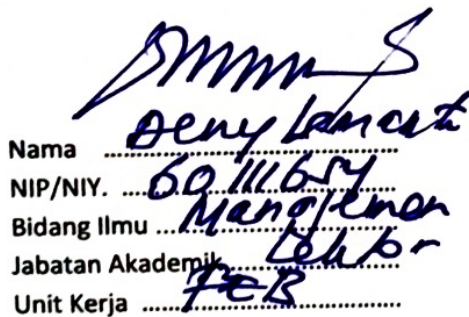 Nama Deny
NIP/NIY. 60111654
Bidang Ilmu Manajemen
Jabatan Akademik Lektor
Unit Kerja FEB